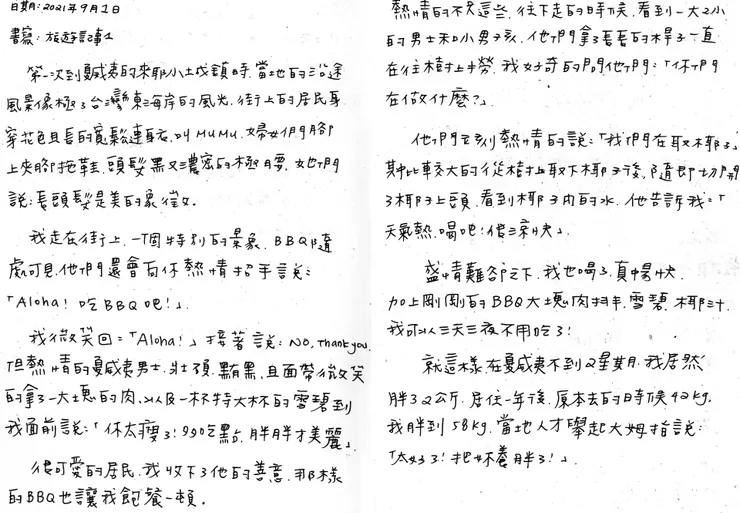 日期:2021年9月1日
書寫:旅遊記事1
第一次到夏威夷的來耶小士成鎮時,當地的沿途
風景像極了台灣東海岸的風光,街上的居民身
穿花色且長的寬鬆連身衣,叫MUMU,婦女們腳
上夾腳拖鞋,頭髮黑又濃密的極腰,她們
說:長頭髮是美的象徵。
我走在街上,一個特別的景象,BBQ隨
處可見,他們還會向你熱情招手說:
「Aloha!吃BBQ吧!」
我微笑回:「Aloha!」接著說:NO, Thank you.
但熱情的夏威夷男士,壯碩、黝黑,且面帶微笑
的拿了一大塊的肉,以及一杯特大杯的雪碧到
我面前說:「你太瘦了!多吃點,胖胖才美麗」
很可愛的居民,我收下了他的善意,那樣
的BBQ也讓我飽餐一頓。
熱情的不只這些,往下走的時候,看到一大2小
的男士和小男孩,他們拿了長長的桿子一直
在往樹上勞,我好奇的問他們:「你們
在做什麼?」
他們立刻熱情的說:「我們在取椰子」
其中比較大的從樹上取下椰子後,隨即切開
了椰子上頭,看到椰子內的水,他告訴我:「
天氣熱,喝吧!很涼快」
盛情難卻之下,我也喝了,真暢快,
加上剛剛的BBQ大塊肉拌雪碧,椰汁,
我可以三天三夜不用吃了!
就這樣在夏威夷不到2星期,我居然
胖了2公斤,居住一年後,原本去的時候42kg,
我胖到58kg,當地人才舉起大姆指說:
「太好了!把妳養胖了!」